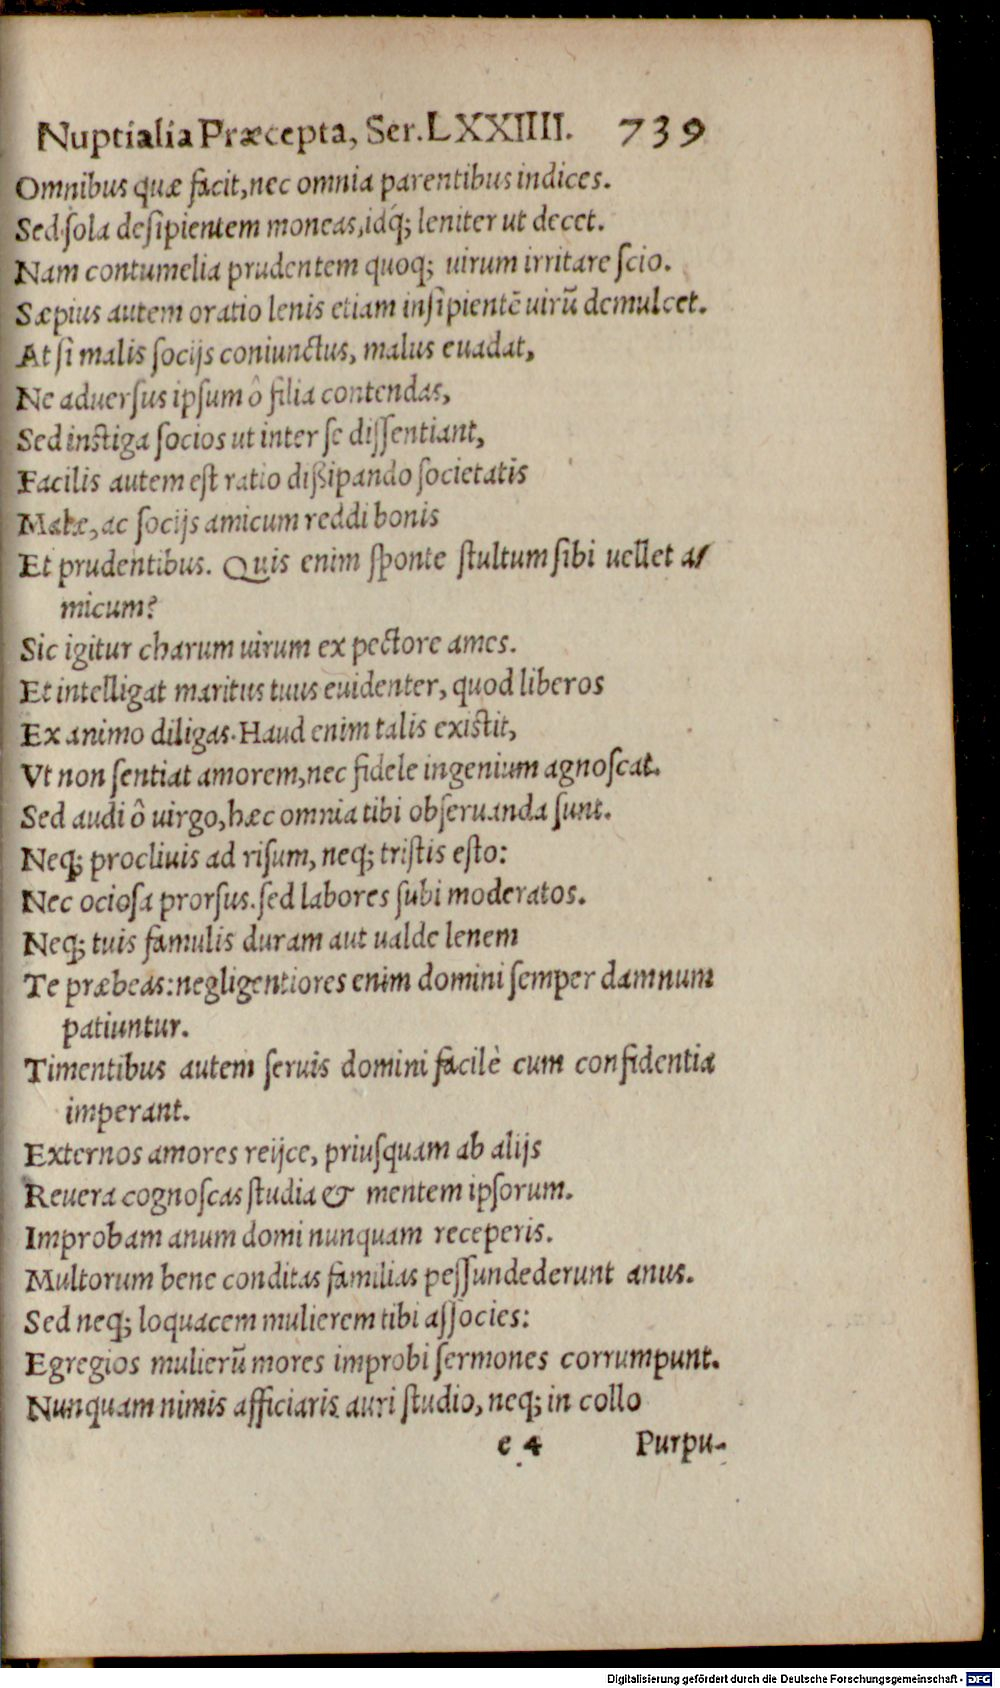 Nuptialia Præcepta, Ser. LXXIIII. 739
Omnibus quæ facit, nec omnia parentibus indices.
Sed sola desipientem moneas, idq́; leniter ut decet.
Nam contumelia prudentem quoq; uirum irritare scio.
Sæpius autem oratio lenis etiam insipientē uirū demulcet.
At si malis socijs coniunctus, malus euadat,
Ne aduersus ipsum ô filia contendas,
Sed instiga socios ut inter se dissentiant,
Facilis autem est ratio dißipando societatis
Malæ, ac socijs amicum reddi bonis
Et prudentibus. Quis enim sponte stultum sibi uellet a/
micum?
Sic igitur charum uirum ex pectore ames.
Et intelligat maritus tuus euidenter, quod liberos
Ex animo diligas. Haud enim talis existit,
Vt non sentiat amorem, nec fidele ingenium agnoscat.
Sed audi ô uirgo, hæc omnia tibi obseruanda sunt.
Neq; procliuis ad risum, neq; tristis esto:
Nec ociosa prorsus. sed labores subi moderatos.
Neq; tuis famulis duram aut ualde lenem
Te præbeas: negligentiores enim domini semper damnum
patiuntur.
Timentibus autem seruis domini facilè cum confidentia
imperant.
Externos amores reijce, priusquam ab alijs
Reuera cognoscas studia & mentem ipsorum.
Improbam anum domi nunquam receperis.
Multorum bene conditas familias pessundederunt anus.
Sed neq; loquacem mulierem tibi associes:
Egregios mulierū mores improbi sermones corrumpunt.
Nunquam nimis afficiaris auri studio, neq; in collo
e 4 Purpu-
Digitalisierung gefördert durch die Deutsche Forschungsgemeinschaft - DFG